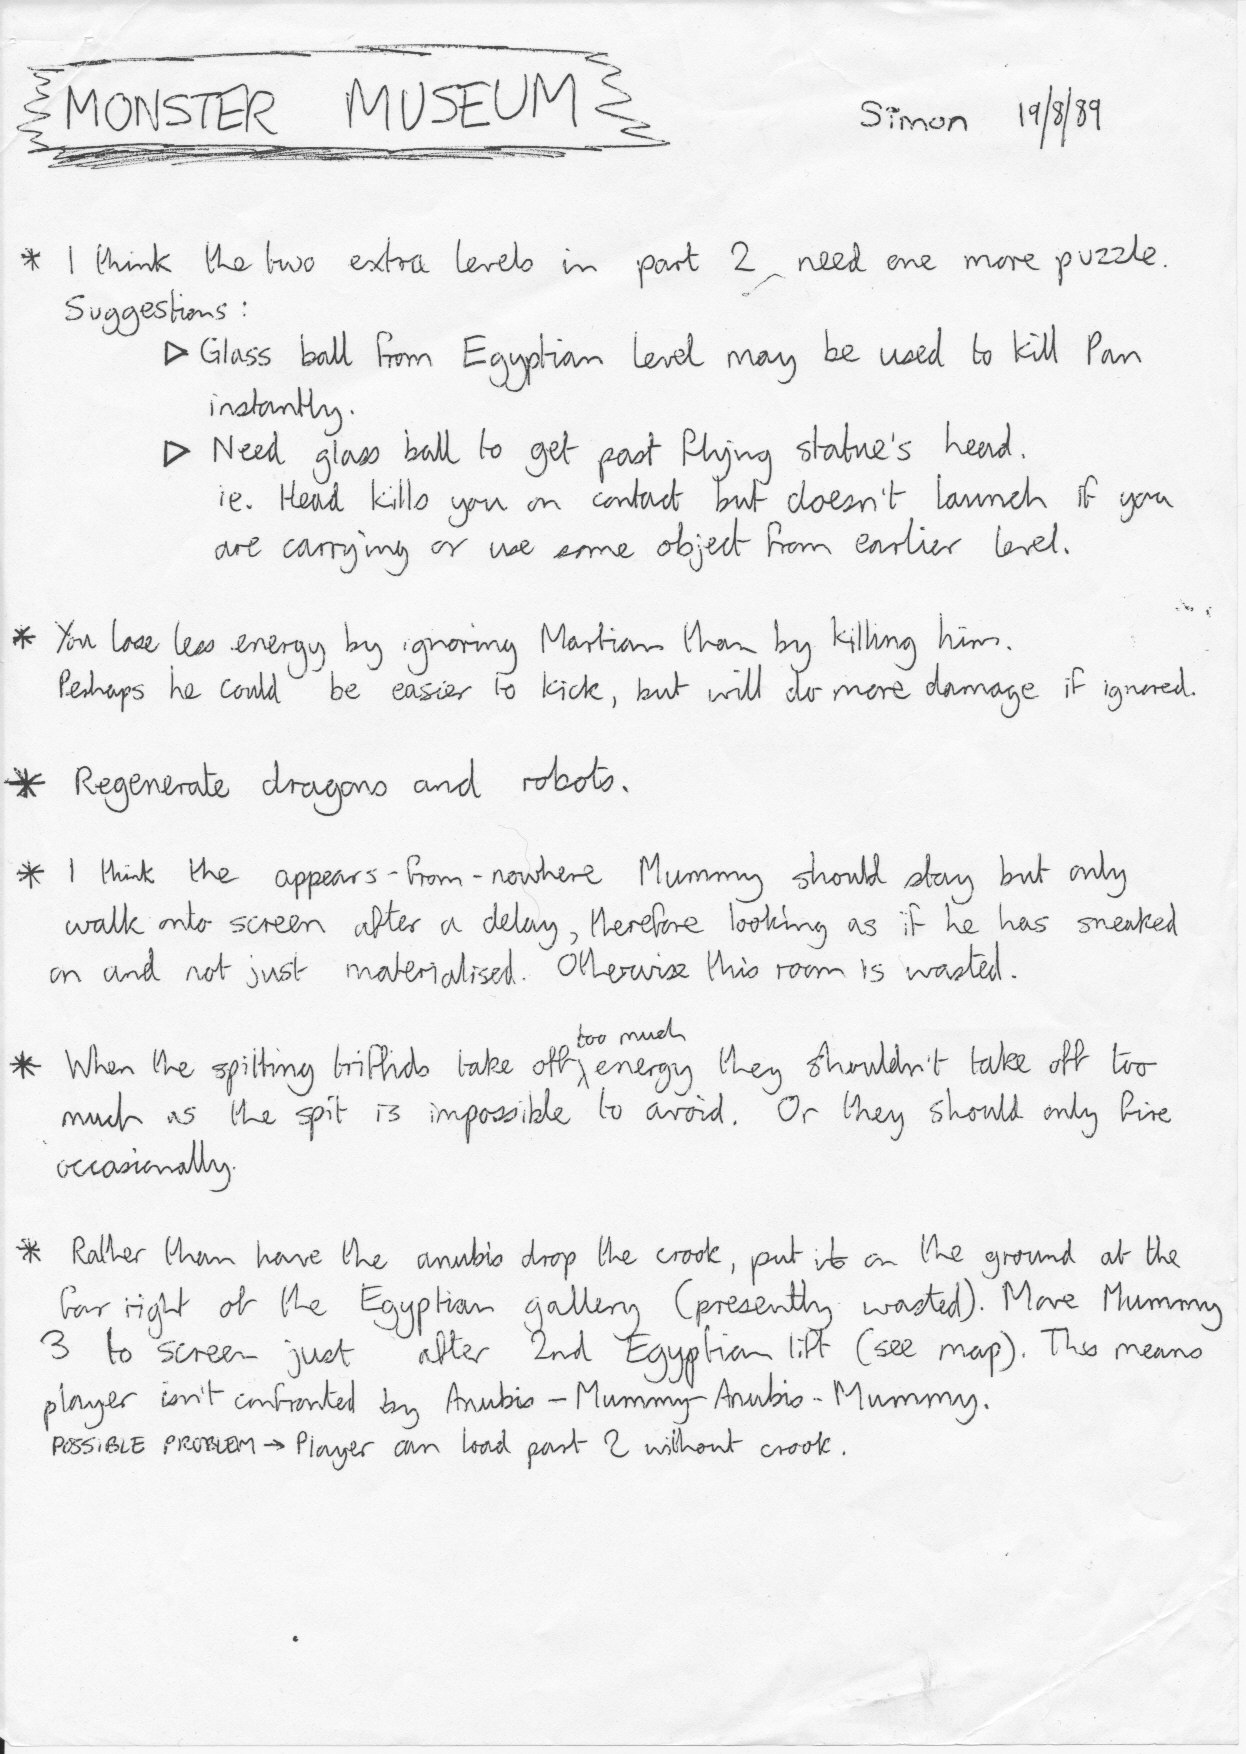 MONSTER MUSEUM Simon 19/8/89
* I think the two extra levels in part 2 need one more puzzle.
Suggestions:
▷ Glass ball from Egyptian level may be used to kill Pan
instantly.
▷ Need glass ball to get past flying statue's head.
ie. Head kills you on contact but doesn't launch if you
are carrying or use some object from earlier level.
* You lose less energy by ignoring Martian than by killing him.
Perhaps he could be easier to kick, but will do more damage if ignored.
* Regenerate dragons and robots.
* I think the appears-from-nowhere Mummy should stay but only
walk onto screen after a delay, therefore looking as if he has sneaked
on and not just materialised. Otherwise this room is wasted.
too much
* When the spitting triffids take off energy they shouldn't take off too
much as the spit is impossible to avoid. Or they should only fire
occasionally.
* Rather than have the anubis drop the crook, put it on the ground at the
far right of the Egyptian gallery (presently wasted). Move Mummy
3 to screen just after 2nd Egyptian lift (see map). This means
player isn't confronted by Anubis - Mummy - Anubis - Mummy.
POSSIBLE PROBLEM → Player can load part 2 without crook.